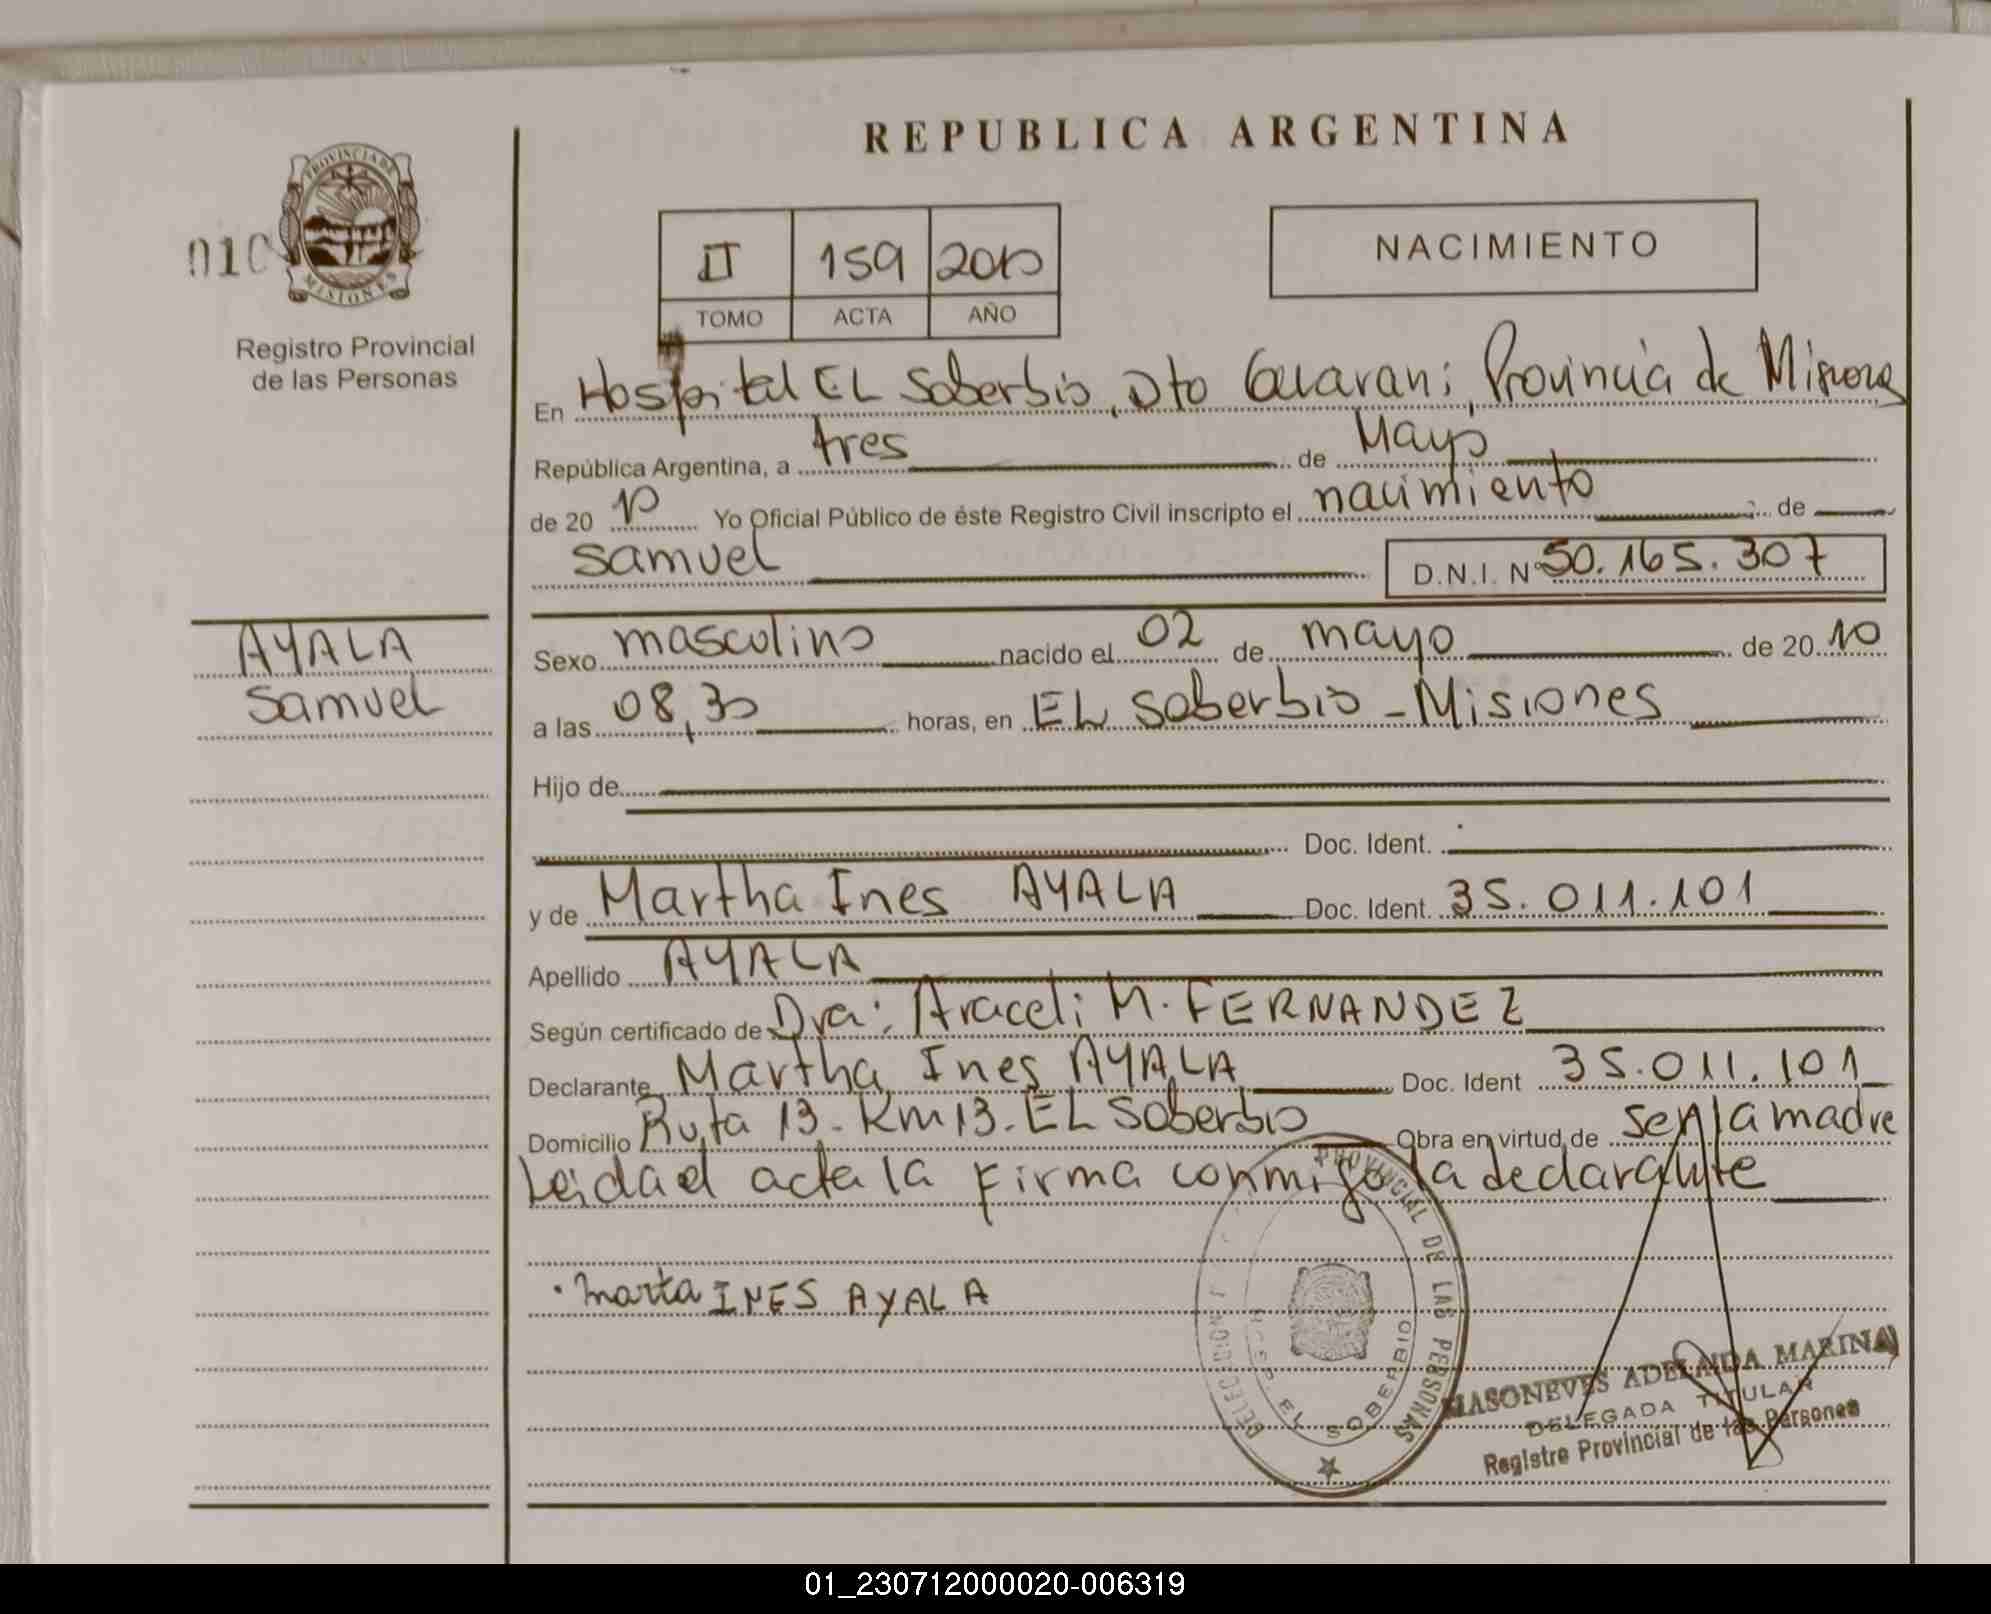 REPUBLICA ARGENTINA
PROVINCIA DE
MISIONES
010
Registro Provincial
de las Personas
II 159 2010
TOMO ACTA AÑO
NACIMIENTO
En Hospital EL Soberbio, Dto Guarani, Provincia de Misiones
República Argentina, a tres de Mayo
de 20 10 Yo Oficial Público de éste Registro Civil inscripto el nacimiento de
Samuel D.N.I. Nº 50.165.307
AYALA
Samuel
Sexo masculino nacido el 02 de mayo de 20 10
a las 08,30 horas, en EL Soberbio - Misiones
Hijo de
Doc. Ident.
y de Martha Ines AYALA Doc. Ident. 35.011.101
Apellido AYALA
Según certificado de Dra: Araceli M. FERNANDEZ
Declarante Martha Ines AYALA Doc. Ident 35.011.101
Domicilio Ruta 13 - Km 13 - EL Soberbio Obra en virtud de ser la madre
Leidad acta la firma conmigo la declarante
Marta INES AYALA
PROVINCIAL DE LAS PERSONAS
EL SOBERBIO
MASONEVES ADELAIDA MARINA
DELEGADA TITULAR
Registro Provincial de las Personas
01_230712000020-006319